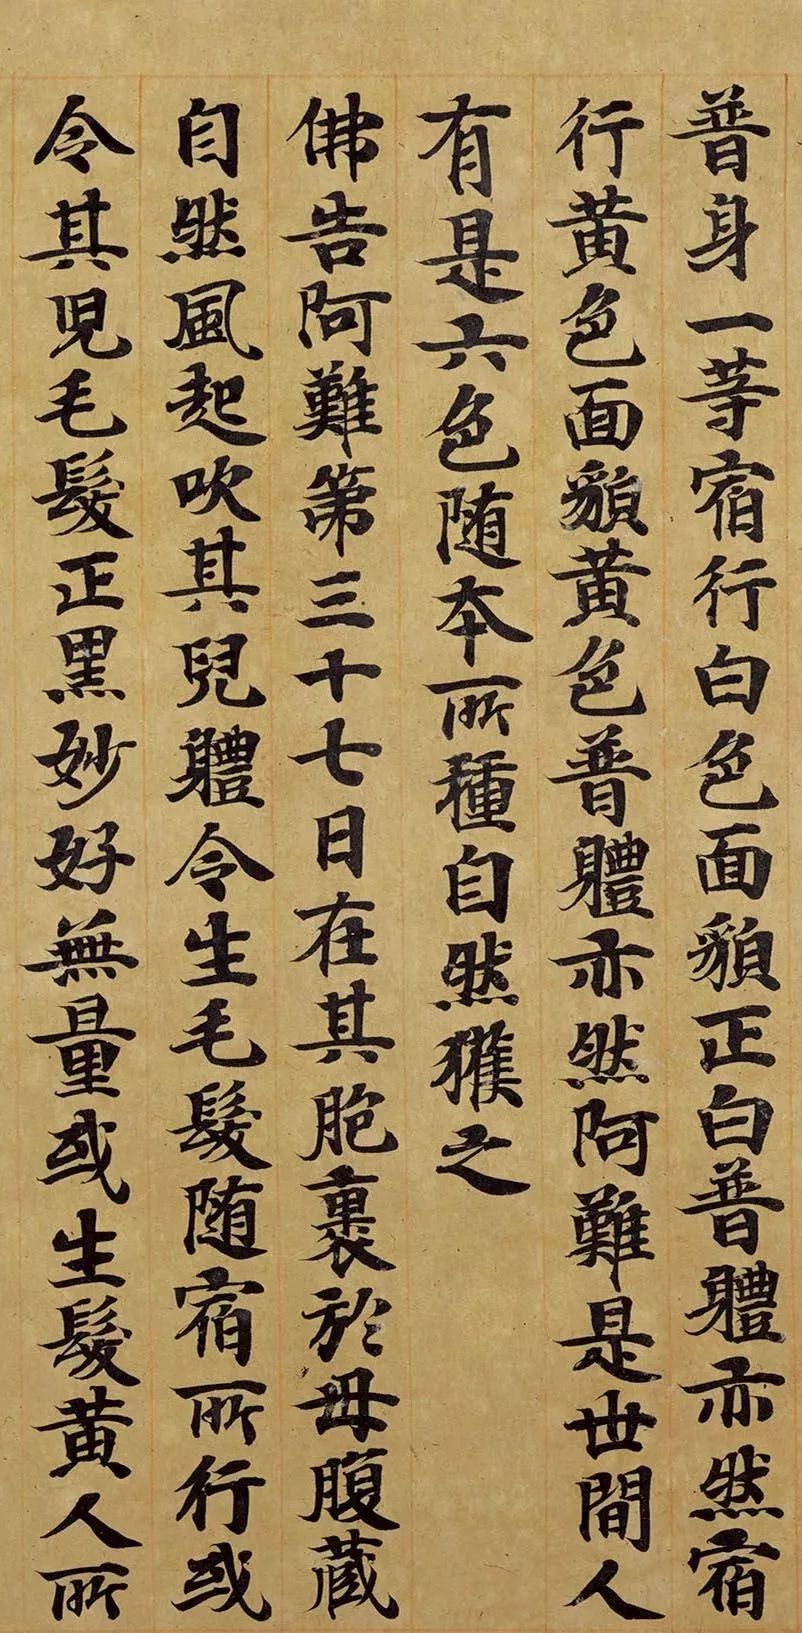 普身一等宿行白色面貌正白普體亦然宿
行黄色面貌黄色普體亦然阿難是世間人
有是六色随本所種自然獲之
佛告阿難第三十七日在其胞裏於母腹藏
自然風起吹其兒體令生毛髮随宿所行或
令其児毛髮正黒妙好無量或生髮黄人所